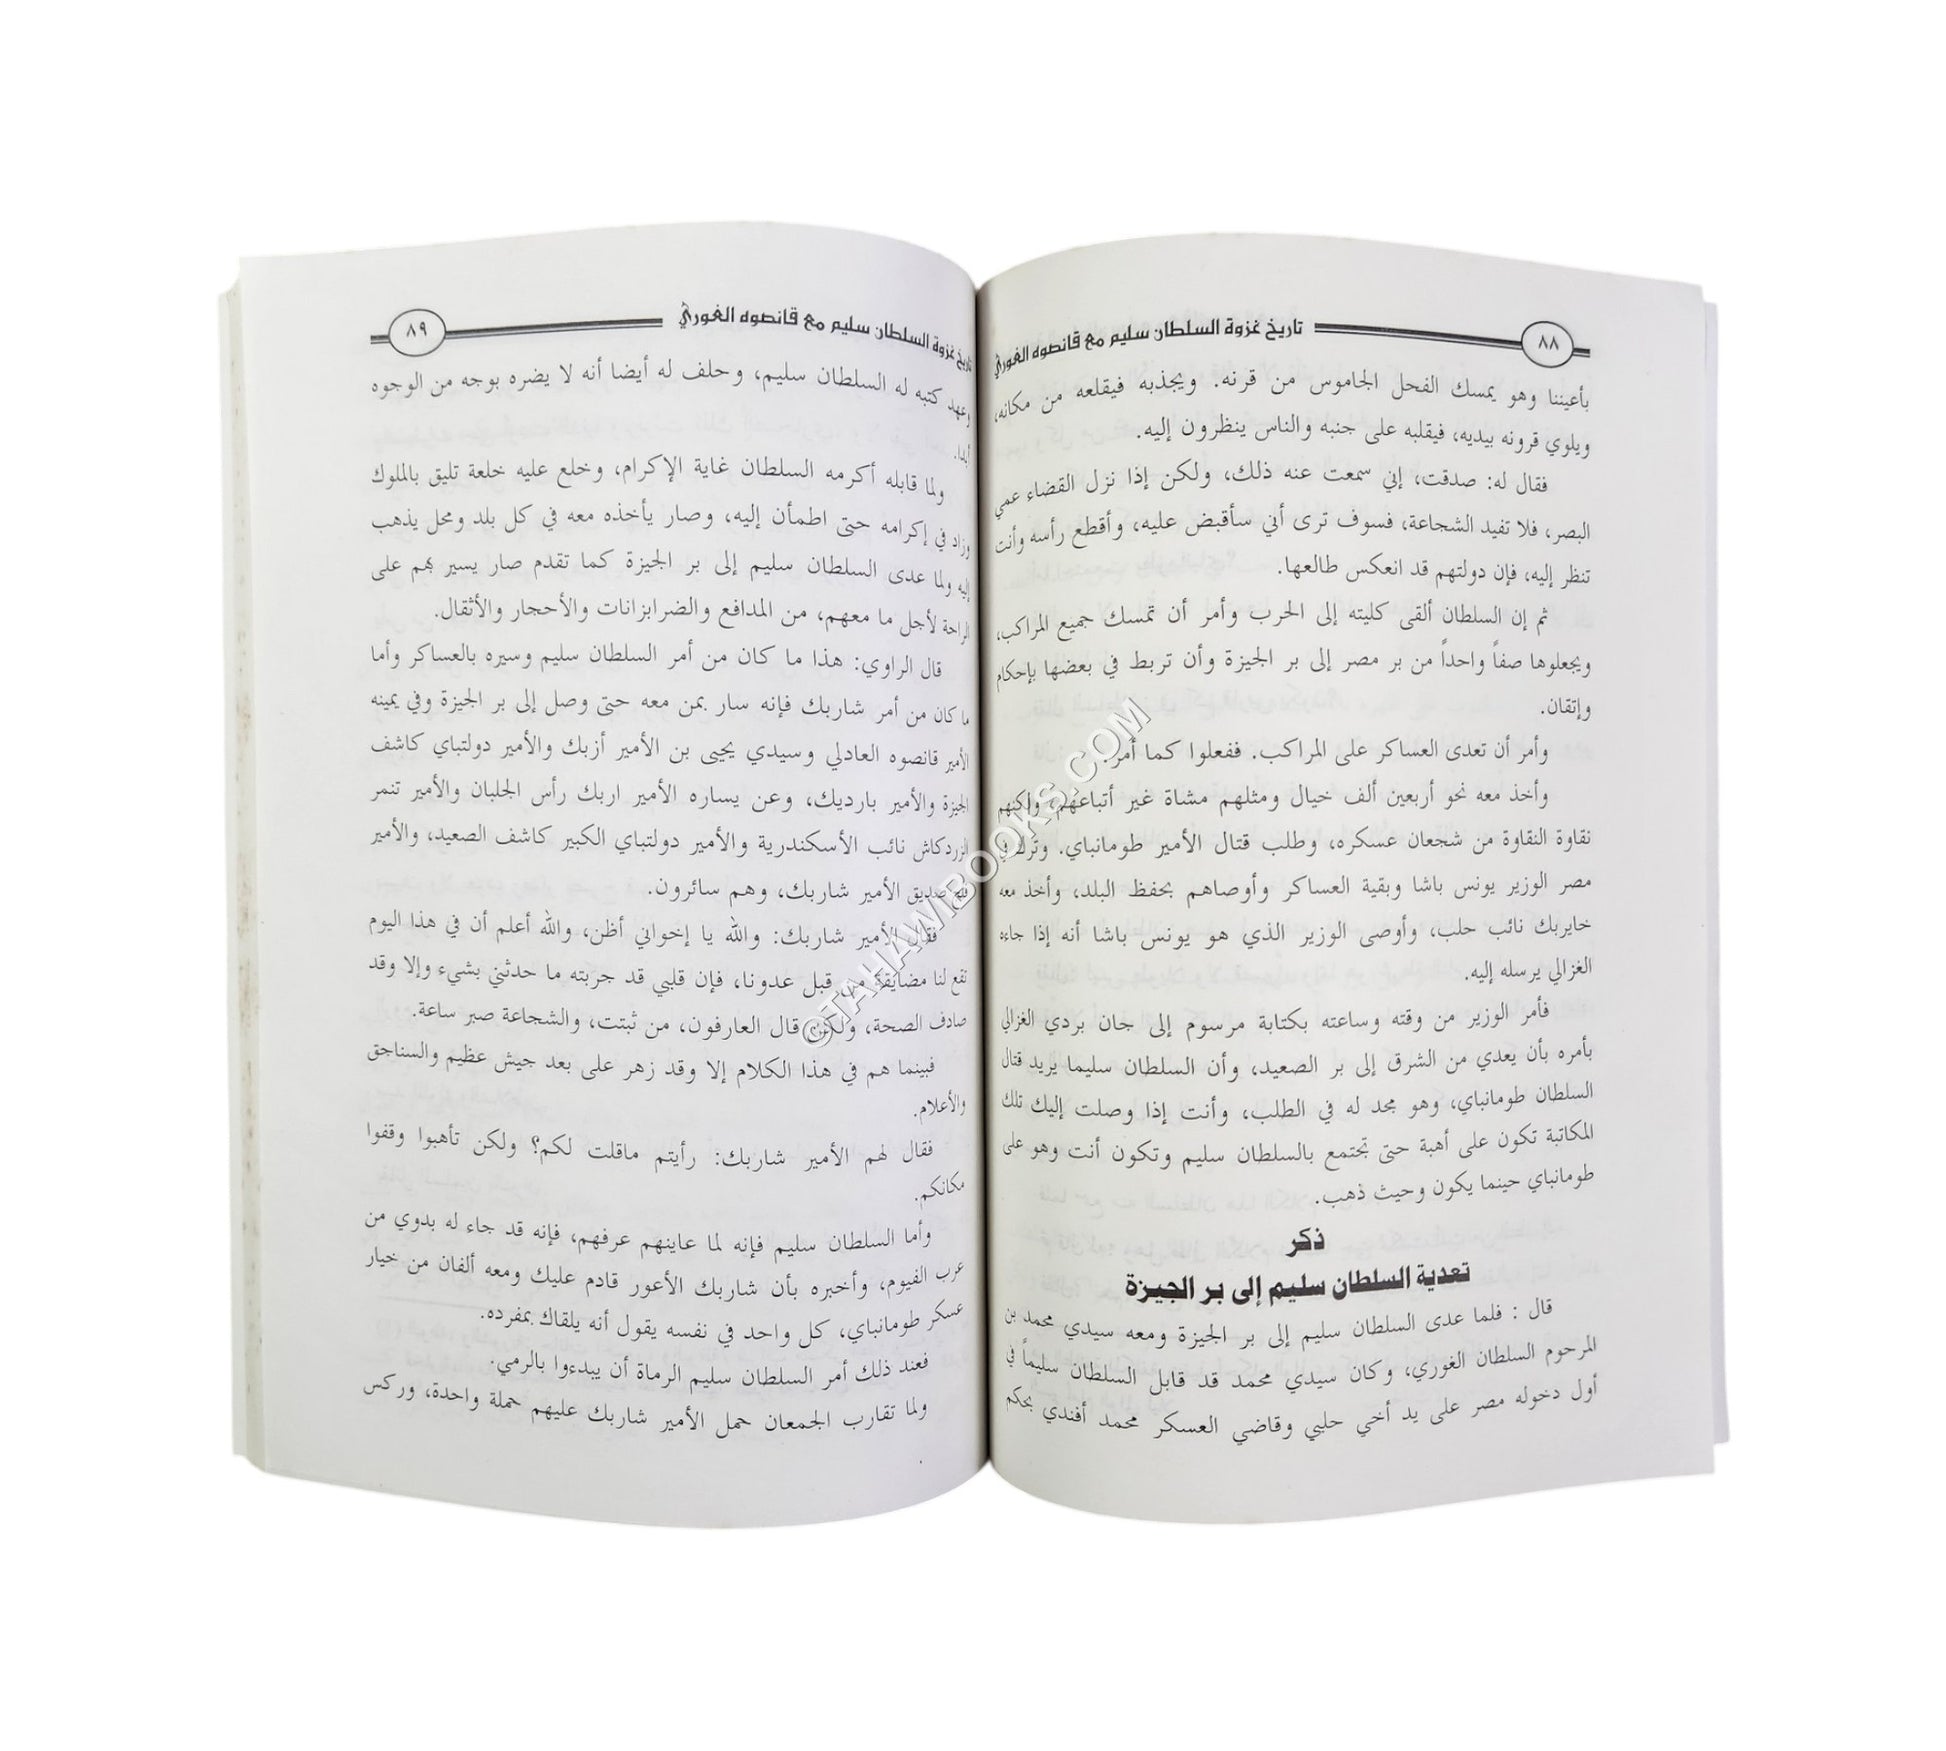 ٨٨
تاريخ غزوة السلطان سليم مع قانصوه الغوري
بأعيننا وهو يمسك الفحل الجاموس من قرنه. ويجذبه فيقلعه من مكانه،
ويلوي قرونه بيديه، فيقلبه على جنبه والناس ينظرون إليه.
فقال له: صدقت، إني سمعت عنه ذلك، ولكن إذا نزل القضاء عمي
البصر، فلا تفيد الشجاعة، فسوف ترى أني سأقبض عليه، وأقطع رأسه وأنت
تنظر إليه، فإن دولتهم قد انعكس طالعها.
ثم إن السلطان ألقى كليته إلى الحرب وأمر أن تمسك جميع المراكب،
ويجعلوها صفاً واحداً من بر مصر إلى بر الجيزة وأن تربط في بعضها بإحكام
وإتقان.
وأمر أن تعدى العساكر على المراكب. ففعلوا كما أمر.
وأخذ معه نحو أربعين ألف خيال ومثلهم مشاة غير أتباعهم، ولكنهم
نقاوة النقاوة من شجعان عسكره، وطلب قتال الأمير طومانباي. وترك في
مصر الوزير يونس باشا وبقية العساكر وأوصاهم بحفظ البلد، وأخذ معه
خايربك نائب حلب، وأوصى الوزير الذي هو يونس باشا أنه إذا جاءه
الغزالي يرسله إليه.
فأمر الوزير من وقته وساعته بكتابة مرسوم إلى جان بردي الغزالي
بأمره بأن يعدي من الشرق إلى بر الصعيد، وأن السلطان سليما يريد قتال
السلطان طومانباي، وهو مجد له في الطلب، وأنت إذا وصلت إليك تلك
المكاتبة تكون على أهبة حتى تجتمع بالسلطان سليم وتكون أنت وهو على
طومانباي حينما يكون وحيث ذهب.
ذكر
تعدية السلطان سليم إلى بر الجيزة
قال : فلما عدى السلطان سليم إلى بر الجيزة ومعه سيدي محمد بن
المرحوم السلطان الغوري، وكان سيدي محمد قد قابل السلطان سليماً في
أول دخوله مصر على يد أخي حلبي وقاضي العسكر محمد أفندي بحكم
تاريخ غزوة السلطان سليم مع قانصوه الغوري
٨٩
وعهد كتبه له السلطان سليم، وحلف له أيضا أنه لا يضره بوجه من الوجوه
أبدا.
ولما قابله أكرمه السلطان غاية الإكرام، وخلع عليه خلعة تليق بالملوك
وزاد في إكرامه حتى اطمأن إليه، وصار يأخذه معه في كل بلد ومحل يذهب
إليه ولما عدى السلطان سليم إلى بر الجيزة كما تقدم صار يسير بهم على
الراحة لأجل ما معهم، من المدافع والضرابزانات والأحجار والأثقال.
قال الراوي: هذا ما كان من أمر السلطان سليم وسيره بالعساكر وأما
ما كان من أمر شاربك فإنه سار بمن معه حتى وصل إلى بر الجيزة وفي يمينه
الأمير قانصوه العادلي وسيدي يحيى بن الأمير أزبك والأمير دولتباي كاشف
الجيزة والأمير بارديك، وعن يساره الأمير اربك رأس الجلبان والأمير تنمر
الزردكاش نائب الأسكندرية والأمير دولتباي الكبير كاشف الصعيد، والأمير
صديق الأمير شاربك، وهم سائرون.
فقال الأمير شاربك: والله يا إخواني أظن، والله أعلم أن في هذا اليوم
تقع لنا مضايقة من قبل عدونا، فإن قلبي قد جربته ما حدثني بشيء وإلا وقد
صادف الصحة، ولكن قال العارفون، من ثبتت، والشجاعة صبر ساعة.
فبينما هم في هذا الكلام إلا وقد زهر على بعد جيش عظيم والسناجق
والأعلام.
فقال لهم الأمير شاربك: رأيتم ماقلت لكم؟ ولكن تأهبوا وقفوا
مكانكم.
وأما السلطان سليم فإنه لما عاينهم عرفهم، فإنه قد جاء له بدوي من
عرب الفيوم، وأخبره بأن شاربك الأعور قادم عليك ومعه ألفان من خيار
عسكر طومانباي، كل واحد في نفسه يقول أنه يلقاك بمفرده.
فعند ذلك أمر السلطان سليم الرماة أن يبدءوا بالرمي.
ولما تقارب الجمعان حمل الأمير شاربك عليهم حملة واحدة، وركس
©TAHAWIBOOKS.COM